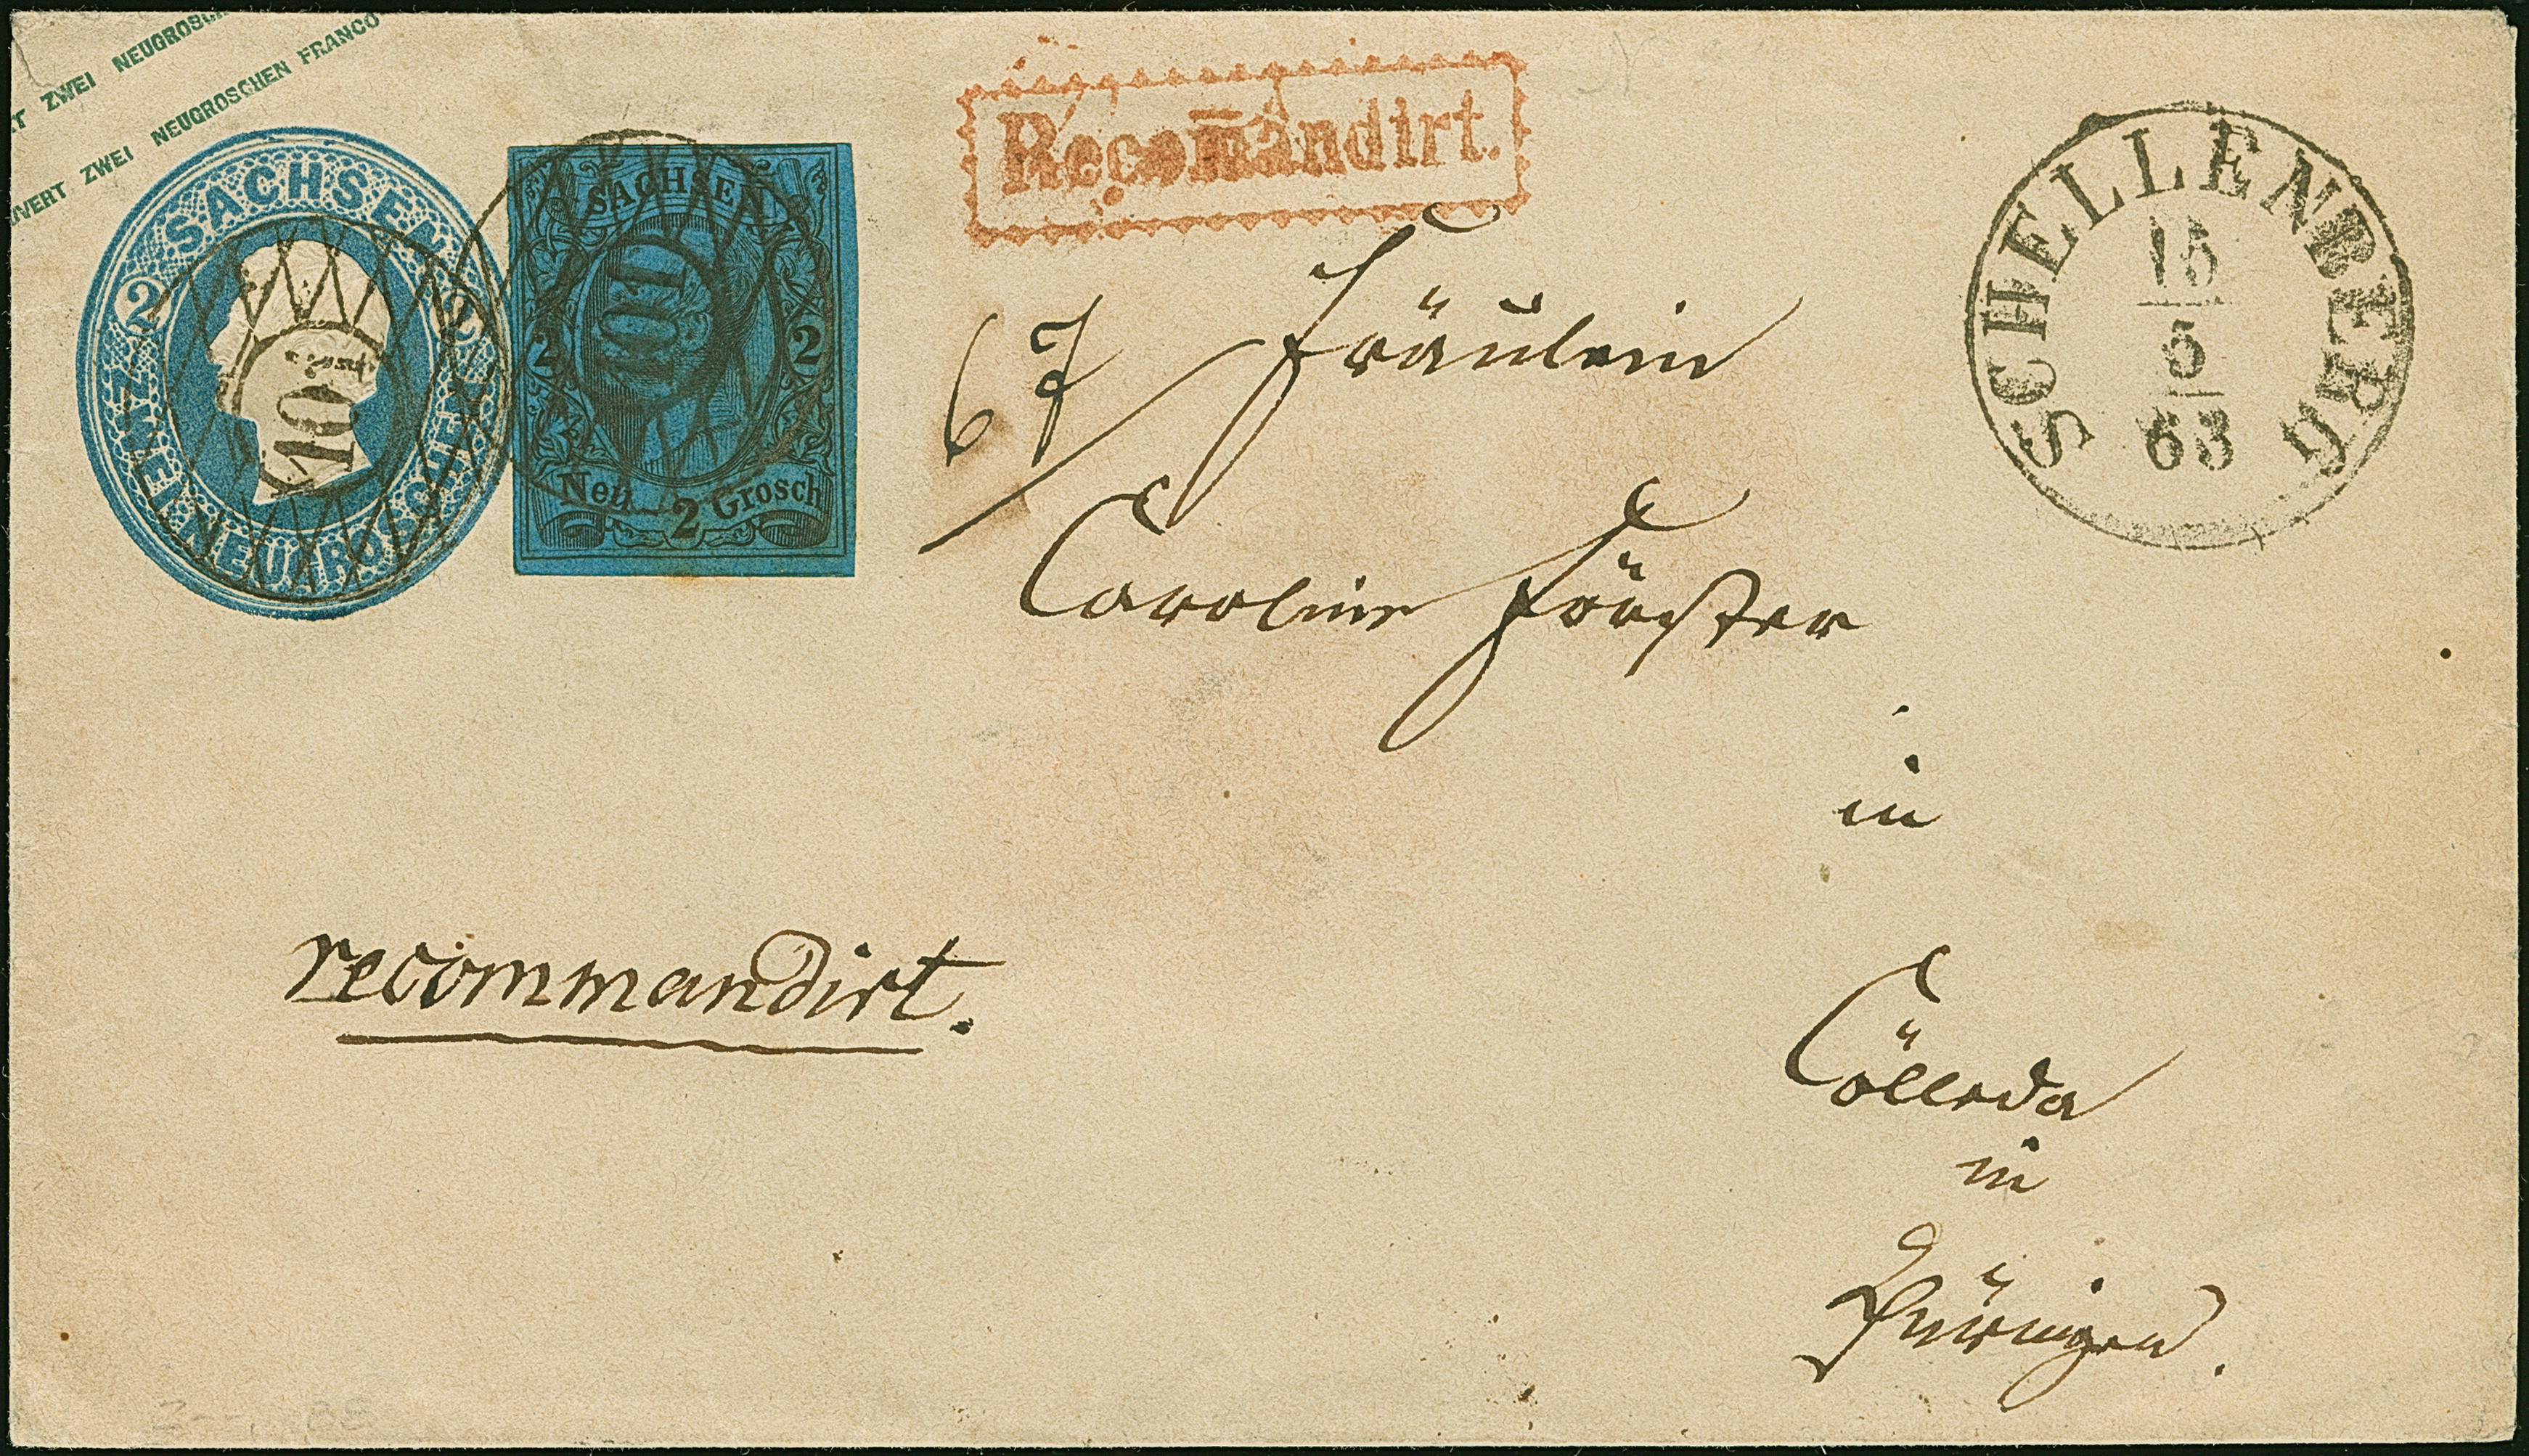 T ZWEI NEUGROSCH
UVERT ZWEI NEUGROSCHEN FRANCO
SACHSEN
2 2
ZWEI NEUGROSCHEN
101
SACHSEN
101
2 2
Neu 2 Grosch
Recom̄andirt.
SCHELLENBERG
15
5
63
67
Fräulein
Caroline Förster
in
Cölleda
in
Thüringen.
recommandirt.